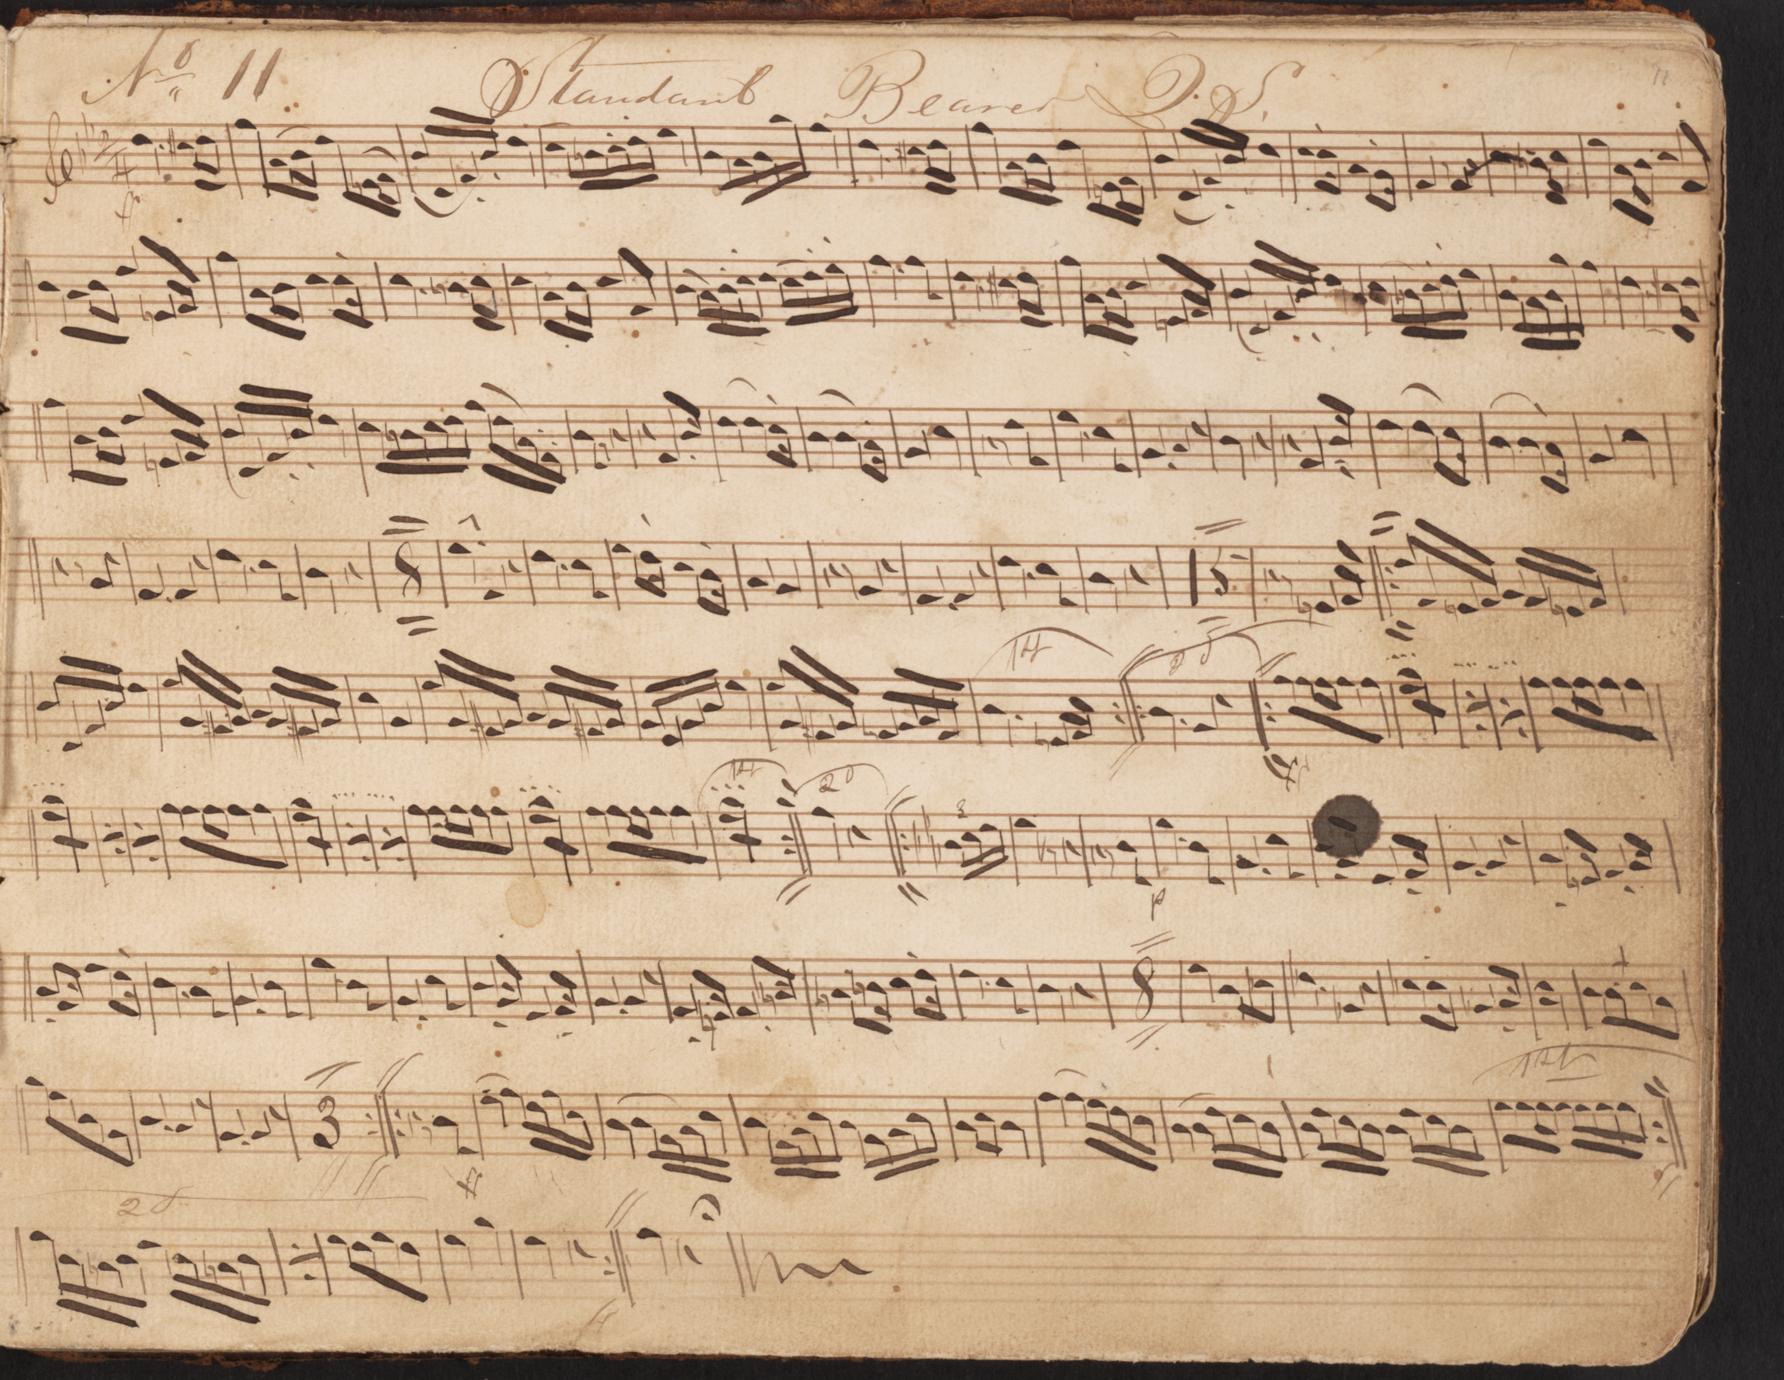 No 11 Standard Bearer Q.S. 11
2
4
15
1st 2d
1st 2d 3
p
1st
3
2d